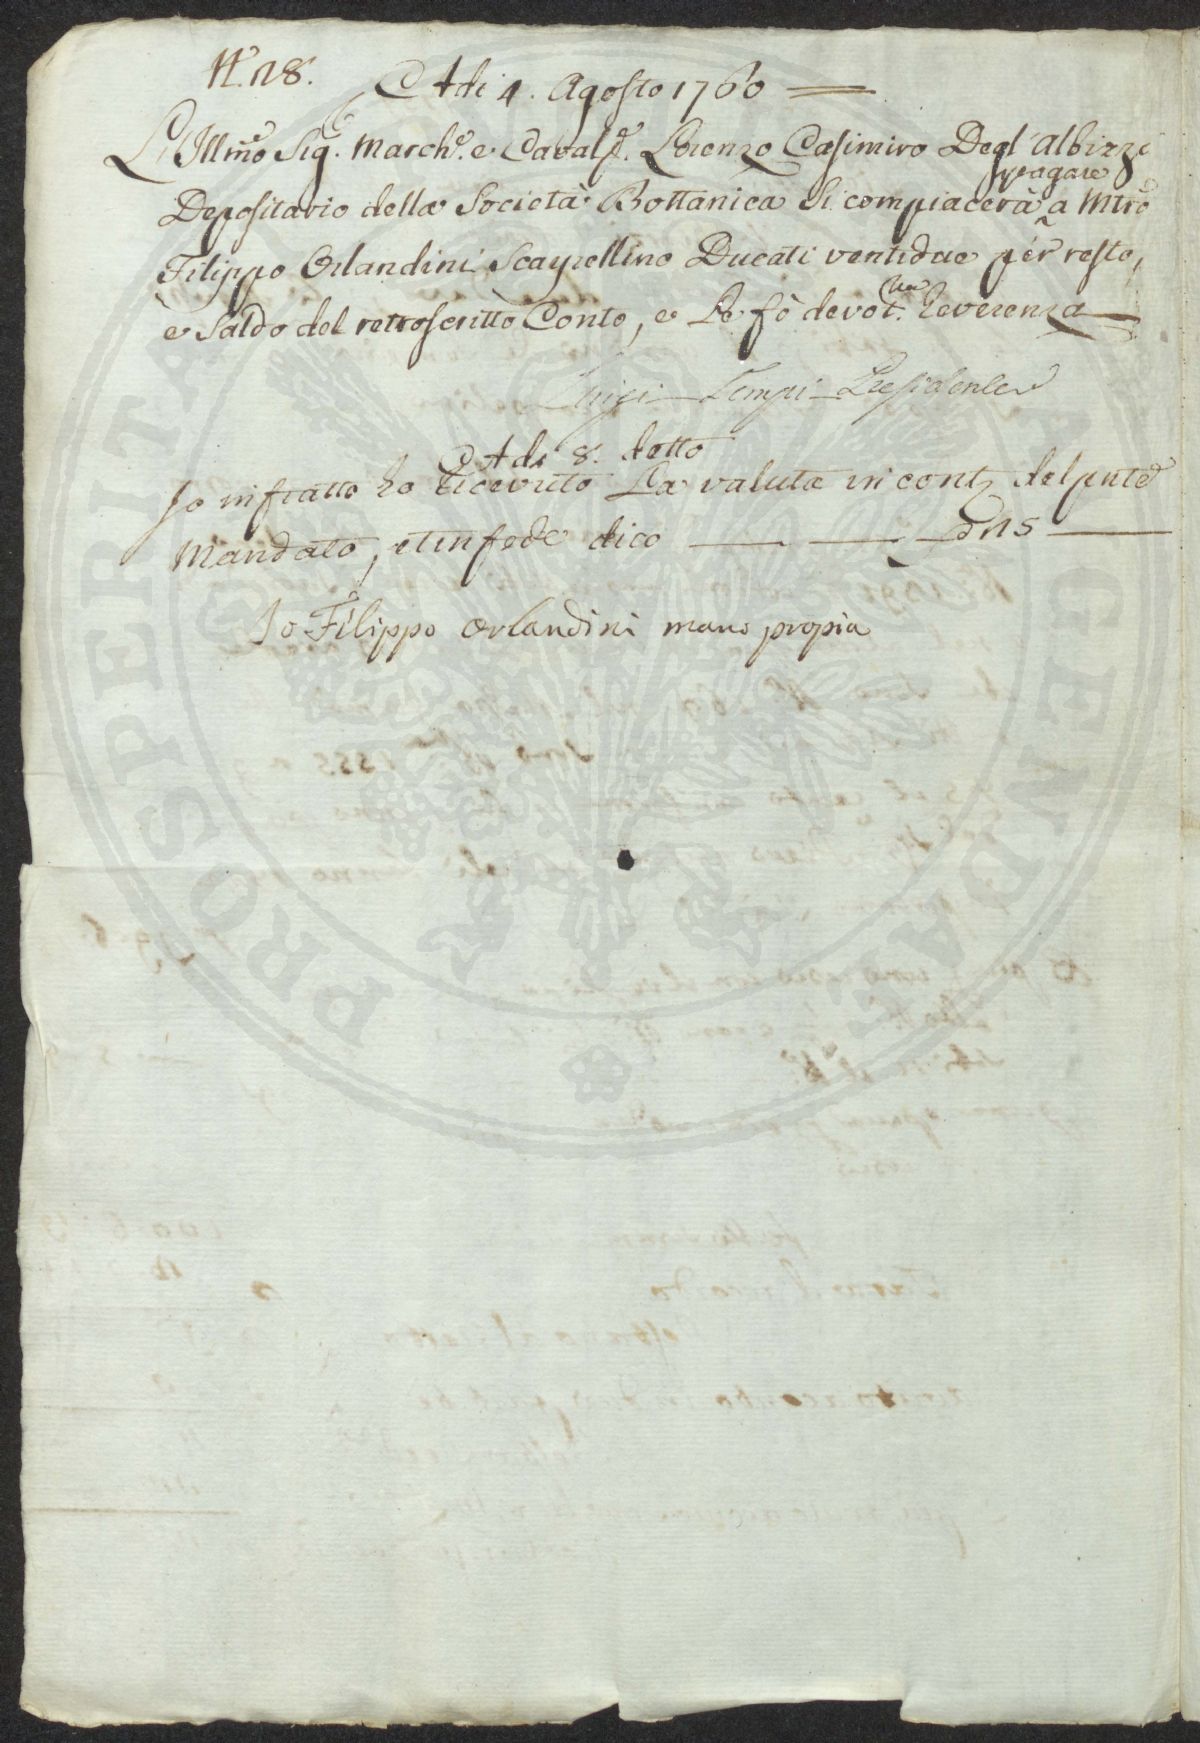 N.º 28.
Adi 4. Agosto 1760
L'Illmo Sig. March.e e Caval.e Lorenzo Casimiro Degl'Albizzi
Depositario della Società Bottanica Si compiacerà pagare a Mtro
Filippo Orlandini Scarpellino Ducati ventidue per resto,
e Saldo del retroscritto Conto, e Le fò devot.ma Reverenza
Luigi Tempi Presidente
Adi 8. detto
Io infratto ho ricevuto La valuta in cont del pnte
Mandato, et in fede dico
Io Filippo Orlandini mano propia
PROSPERITATI AUGENDAE